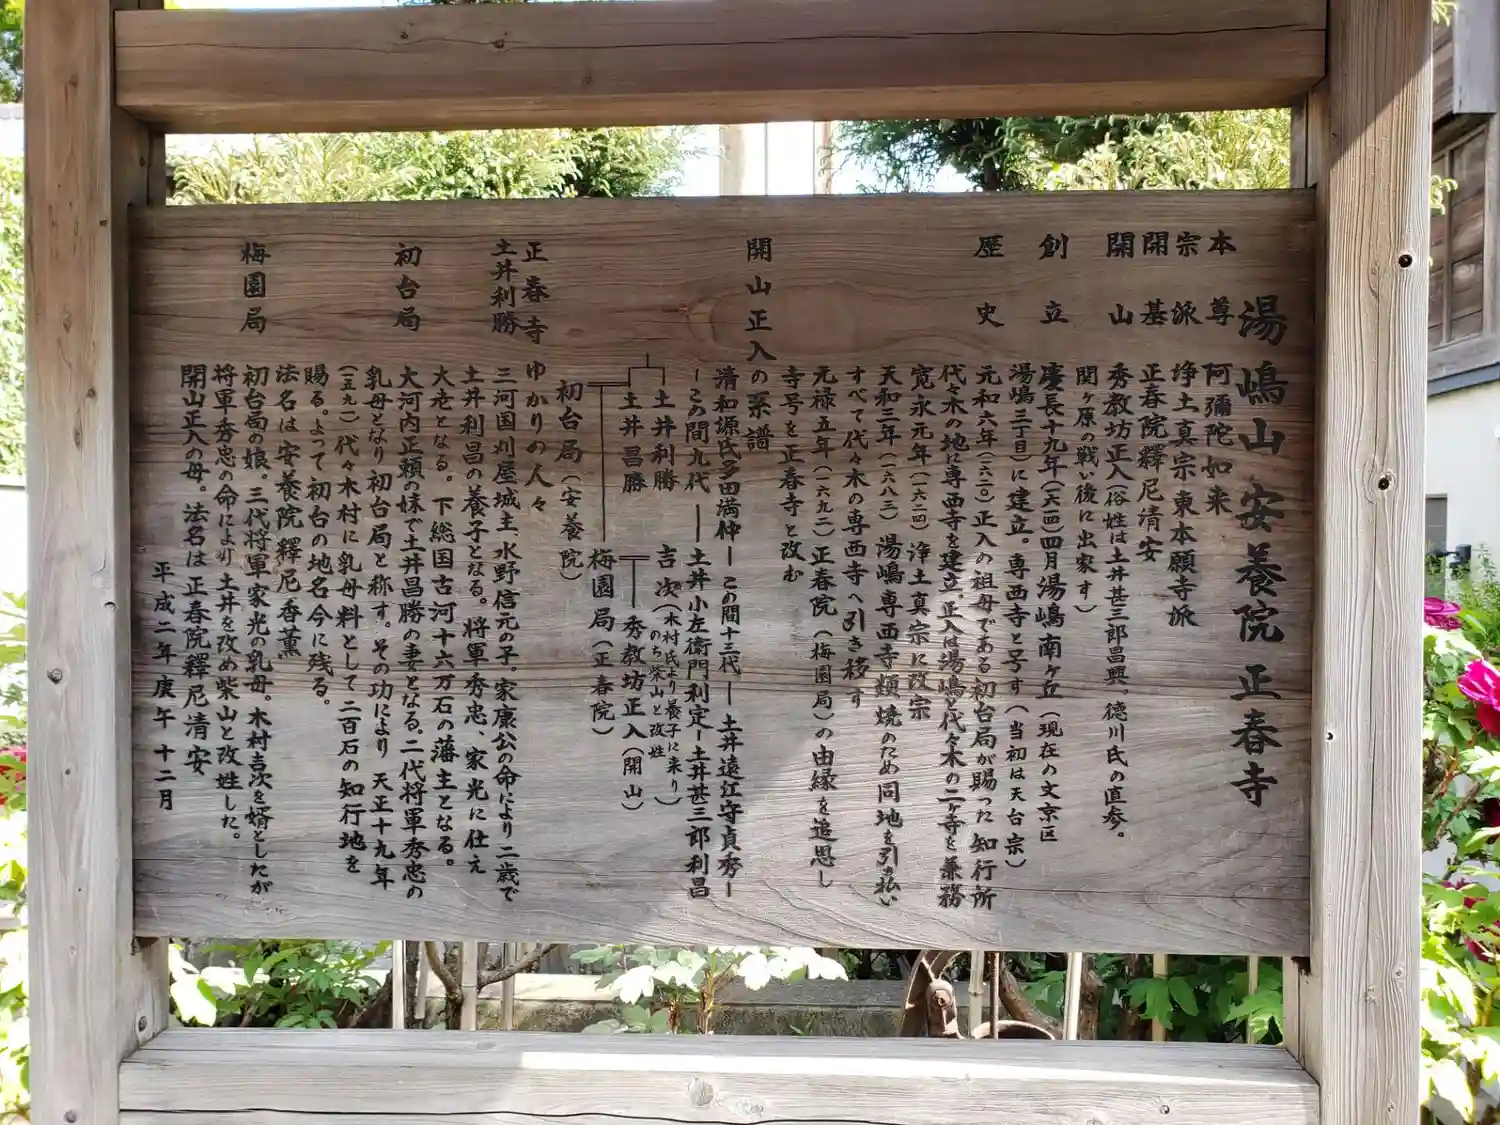 湯嶋山 安養院 正春寺
本尊 阿彌陀如来
宗派 浄土真宗東本願寺派
開基 正春院釋尼清安
開山 秀教坊正入(俗姓は土井甚三郎昌興。徳川氏の直参。
関ヶ原の戦い後に出家す)
創立 慶長十九年(一六一四)四月湯嶋南ヶ丘(現在の文京区
湯嶋三丁目)に建立。専西寺と号す(当初は天台宗)
歴史 元和六年(一六二〇)正入の祖母である初台局が賜った知行所
代々木の地に専西寺を建立。正入は湯嶋と代々木の二ヶ寺を兼務
寛永元年(一六二四)浄土真宗に改宗
天和三年(一六八三)湯嶋専西寺類焼のため同地を引き払い
すべて代々木の専西寺へ引き移す
元禄五年(一六九二)正春院(梅園局)の由縁を追思し
寺号を正春寺と改む
開山正入の系譜
清和源氏多田満仲―この間十三代―土井遠江守貞秀―
―この間九代―土井小左衛門利定―土井甚三郎利昌
土井利勝
土井昌勝
初台局(安養院)
吉次(木村氏より養子に来り
のち柴山と改姓)
梅園局(正春院)
秀教坊正入(開山)
正春寺ゆかりの人々
土井利勝 三河国刈屋城主、水野信元の子。家康公の命により二歳で
土井利昌の養子となる。将軍秀忠、家光に仕え
大老となる。下総国古河十六万石の藩主となる。
初台局 大河内正頼の妹で土井昌勝の妻となる。二代将軍秀忠の
乳母となり初台局と称す。その功により天正十九年
(一五九一)代々木村に乳母料として二百石の知行地を
賜る。よって初台の地名今に残る。
法名は安養院釋尼香薫
梅園局 初台局の娘。三代将軍家光の乳母。木村吉次を婿としたが
将軍秀忠の命により土井を改め柴山と改姓した。
開山正入の母。法名は正春院釋尼清安
平成二年庚午十二月